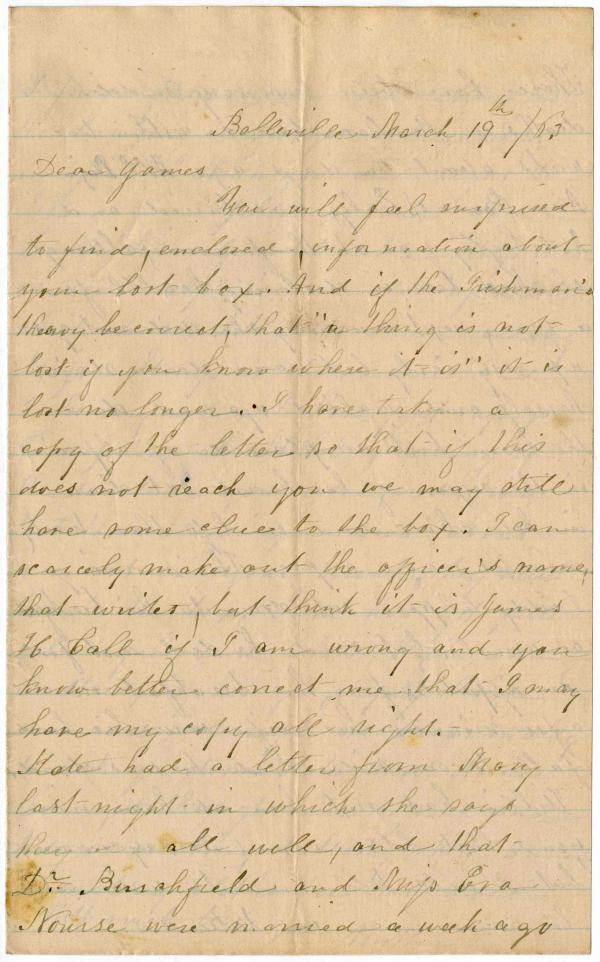 Belleville March 19th /63
Dear James
You will feel surprised
to find, enclosed, information about
your lost box. And if the Irishman's
theory be correct, that "a thing is not
lost if you know where it is" it is
lost no longer. I have taken a
copy of the letter so that if this
does not reach you we may still
have some clue to the box. I can
scarcely make out the officer's name,
that writes, but think it is James
H Call if I am wrong and you
know better correct me that I may
have my copy all right.-
Kate had a letter from Mary
last night in which she says
they all well, and that
Dr. Burchfield and Miss Eva
Nourse were married a week ago